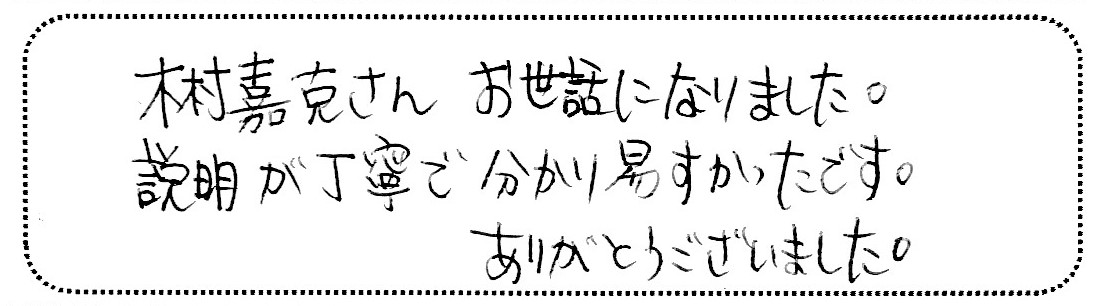 木村嘉克さん お世話になりました。
説明が丁寧で分かり易すかったです。
ありがとうございました。